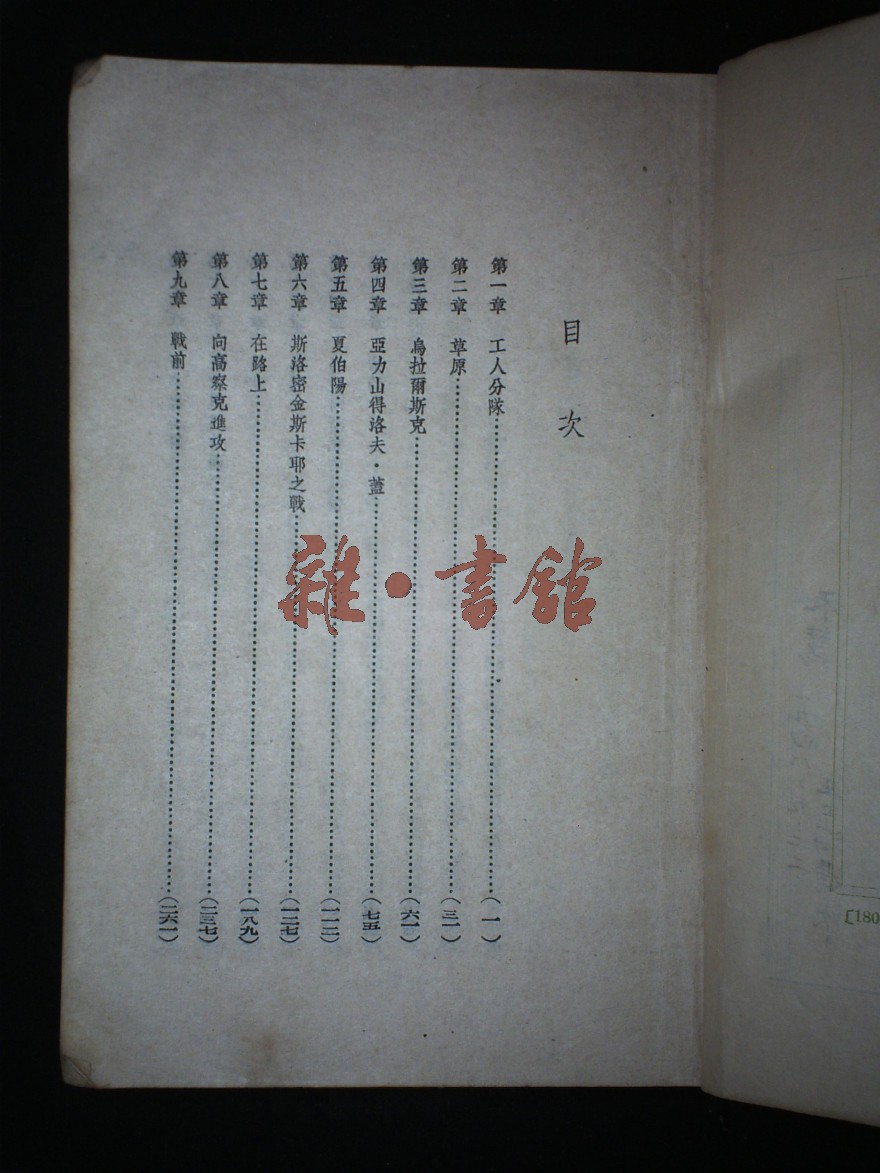 目次
第一章 工人分隊……(一)
第二章 草原……(三一)
第三章 烏拉爾斯克……(六一)
第四章 亞力山得洛夫・蓋……(七五)
第五章 夏伯陽……(一一三)
第六章 斯洛密金斯卡耶之戰……(一二七)
第七章 在路上……(一八九)
第八章 向高察克進攻……(二三七)
第九章 戰前……(二六一)
雜・書館
〔180